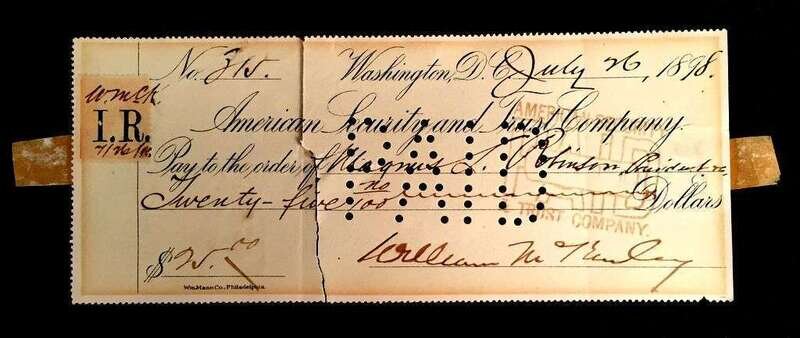 No. 315. Washington, D.C. July 26, 1898.
W McK
I.R.
7/26/98
American Security and Trust Company.
AMERICAN
Pay to the order of Magnus L. Robinson President &c
PAID
Twenty-five no/100 Dollars
& TRUST COMPANY.
$25.00 William McKinley
Wm. Mann Co., Philadelphia.